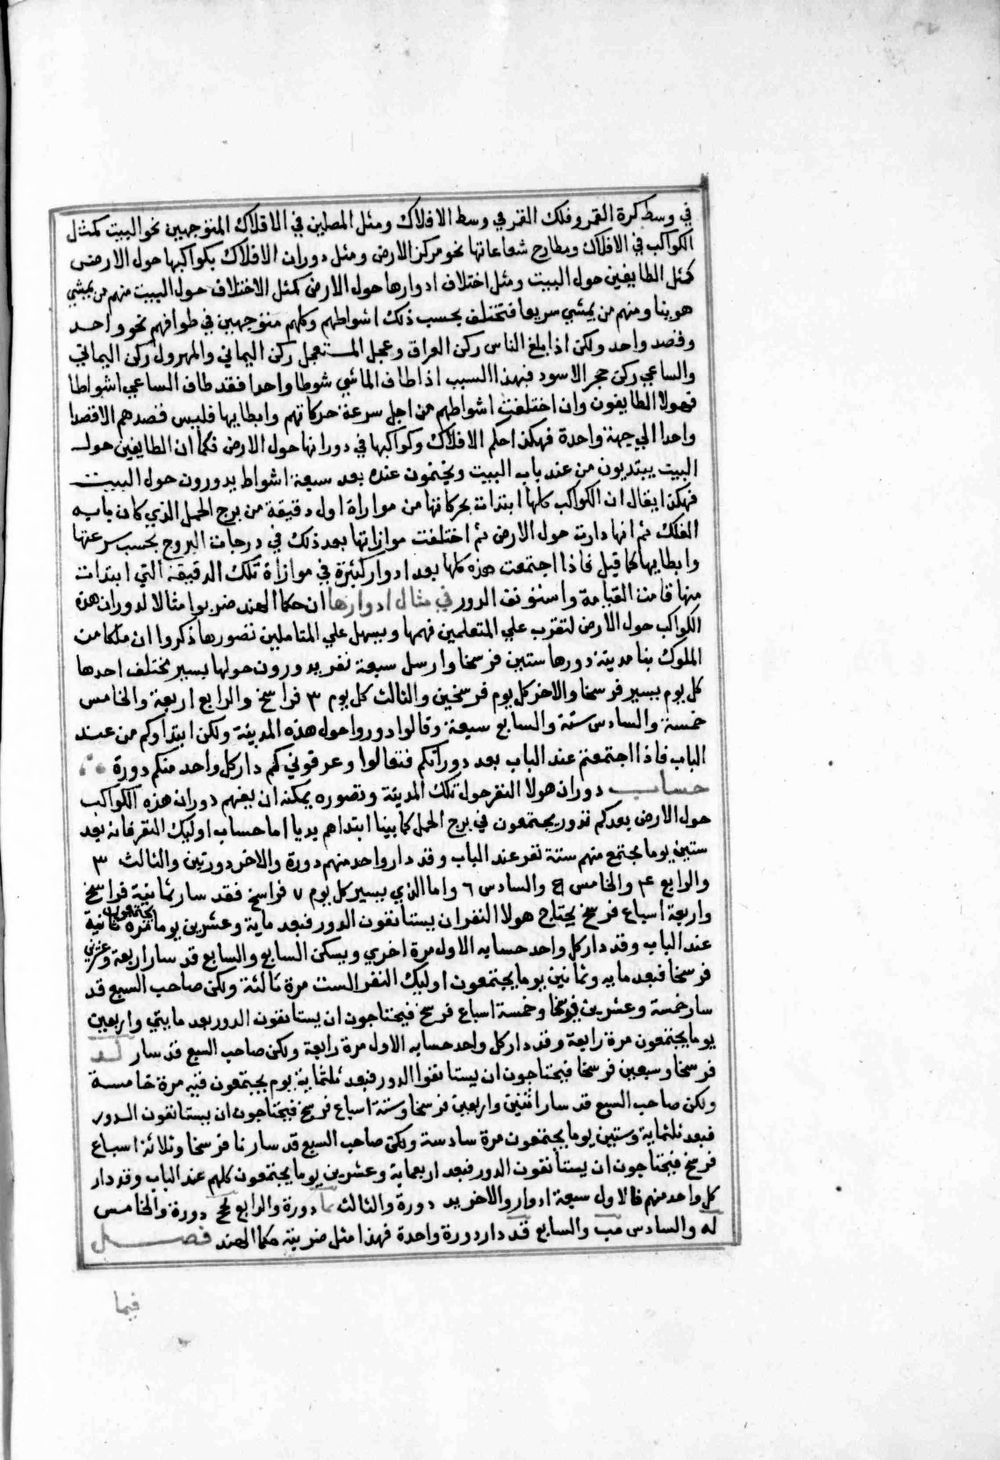 في وسط كرة القمر وفلك القمر في وسط الافلاك ومثل المصلين في الافلاك المتوجهين نحو البيت كمثل
الكواكب في الافلاك ومطارح شعاعاتها نحو مركز الارض ومثل دوران الافلاك بكواكبها حول الارض
كمثل الطايفين حول البيت ومثل اختلاف ادوارها حول الارض كمثل الاختلاف حول البيت منهم من يمشي
هوينا ومنهم من يمشي سريعا فتختلف بحسب ذلك اشواطهم وكلهم متوجهين في طوافهم نحو واحد
وقصد واحد ولكن اذا بلغ الناس ركن العراق وعجل المستعجل ركن اليماني والمهرول ركن اليماني
والساعي ركن حجر الاسود فبهذا السبب اذا طاف الماشي شوطا واحدا فقد طاف الساعي اشواطا
فهولا الطايفون وان اختلفت اشواطهم من اجل سرعة حركاتهم وابطايها فليس قصدهم الا قصدا
واحدا الي جهة واحدة فهكذا حكم الافلاك وكواكبها في دورانها حول الارض فكما ان الطايفين حول
البيت يبتديون من عند باب البيت ويختمون عنده بعد سبعة اشواط يدورون حول البيت
فهكذا يقال ان الكواكب كلها ابتدات بحركاتها من موازاة اول دقيقة من برج الحمل الذي كان بابه
الفلك ثم انها دارت حول الارض ثم اختلفت موازاتها بعد ذلك في درجات البروج بحسب سرعتها
وابطايها كما قيل فاذا اجتمعت هذه كلها بعد ادوار كثيرة في موازاة تلك الدقيقة التي ابتدات
منها قامت القيامة واستونف الدور في مثال ادوارها ان حكما الهند ضربوا مثالا لدوران هذه
الكواكب حول الارض لتقرب علي المتعلمين فهمها ويسهل علي المتاملين تصورها ذكروا ان ملكا من
الملوك بنا مدينة دورها ستين فرسخا وارسل سبعة نفر يدورون حولها بسير مختلف احدها
كل يوم بسير فرسخا والاخر كل يوم فرسخين والثالث كل يوم ٣ فراسخ والرابع اربعة والخامس
خمسة والسادس ستة والسابع سبعة وقالوا دوروا حول هذه المدينة ولكن ابتداوكم من عند
الباب فاذا اجتمعتم عند الباب بعد دورانكم فتعالوا وعرفوني كم دار كل واحد منكم دورة
حساب دوران هولا النفر حول تلك المدينة وتصوره يمكنه ان يفهم دوران هذه الكواكب
حول الارض بعدكم تدور يجتمعون في برج الحمل كما بينا ابتداهم بديا اما حساب اوليك النفر فانه بعد
ستين يوما يجتمع منهم ستة نفر عند الباب وقد دار واحد منهم دورة والاخر دورتين والثالث ٣
والرابع ۴ والخامس ۵ والسادس ٦ واما الذي يسير كل يوم ٧ فراسخ فقد سار ثمانية فراسخ
واربعة اسباع فرسخ يحتاج هولا النفر ان يستانفون الدور فبعد ماية وعشرين يوما يجتمعون مرة ثانية
عند الباب وقد دار كل واحد حسابه الاول مرة اخري ويسكن السابع والسابع قد سار اربعة وعشرين
فرسخا فبعد مايه وثمانين يوما يجتمعون اوليك النفر الست مرة ثالثة ولكن صاحب السبع قد
سار خمسة وعشرين فرسخا وخمسة اسباع فرسخ فيحتاجون ان يستانفون الدور بعد مايتي واربعين
يوما يجتمعون مرة رابعة وقد دار كل واحد حسابه الاول مرة رابعة ولكن صاحب السبع قد سار لد
فرسخا وسبعين فرسخا فيحتاجون ان يستانفوا الدور فبعد ثلثماية يوم يجتمعون فيه مرة خامسة
ولكن صاحب السبع قد سار اثنين واربعين فرسخا وستة اسباع فرسخ فيحتاجون ان يستانفون الدور
فبعد ثلثماية وستين يوما يجتمعون مرة سادسة ولكن صاحب السبع قد سار نا فرسخا وثلاثة اسباع
فرسخ فيحتاجون ان يستانفون الدور فبعد اربعماية وعشرين يوما يجتمعون كلهم عند الباب وقد دار
كل واحد منهم فالاول سبعة ادوار والاخر يد دورة والثالث كا دورة والرابع كح دورة والخامس
له والسادس مب والسابع قد دار دورة واحدة فهذا مثل ضربته حكما الهند فصل
فيما